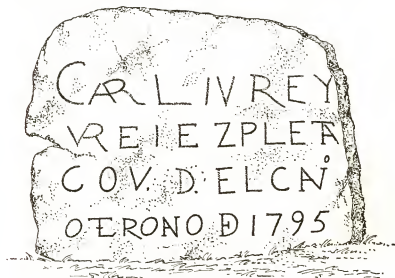 CARL IV REY
VREIEZPLETA
COV. D. ELCAÑ
OTRONO D 1795